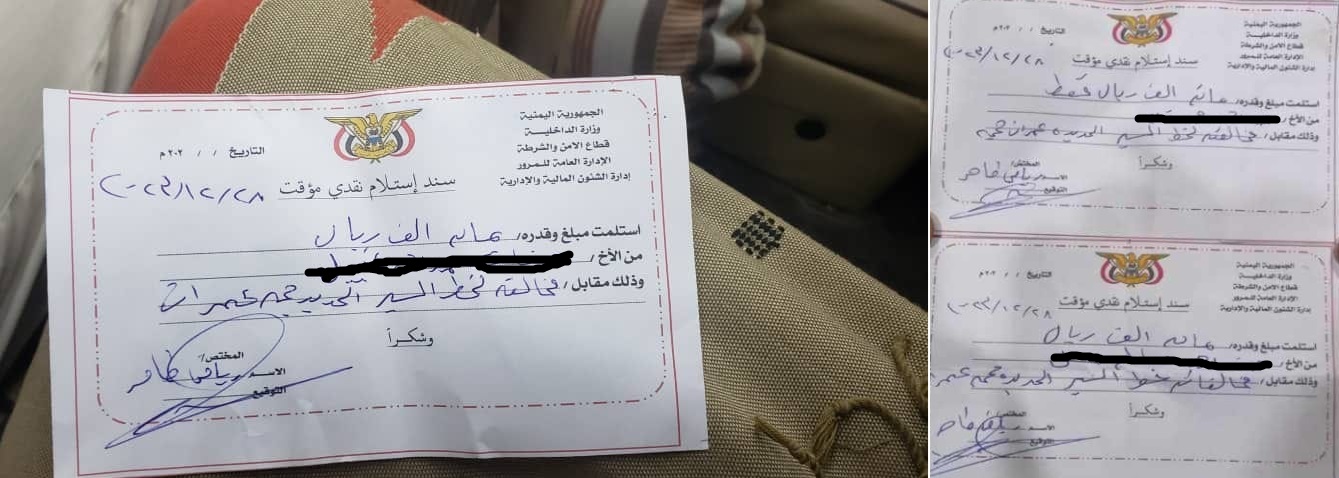 الجمهورية اليمنية
وزارة الداخلية
قطاع الامن والشرطة
الإدارة العامة للمرور
إدارة الشئون المالية والإدارية
التاريخ / / ٢٠٢م
سند إستلام نقدي مؤقت
٢٠٢٣/١٢/٢٨
استلمت مبلغ وقدره/ مائه الف ريال
من الأخ /
وذلك مقابل / مخالفة لخط السير الحديده حجه عمران
وشكراً
المختص/
الاسم رياض طاهر
التوقيع
الجمهورية اليمنية
وزارة الداخلية
قطاع الامن والشرطة
الإدارة العامة للمرور
إدارة الشئون المالية والإدارية
التاريخ / / ٢٠٢م
سند إستلام نقدي مؤقت
٢٠٢٣/١٢/٢٨
استلمت مبلغ وقدره/ مائه الف ريال فقط
من الأخ /
وذلك مقابل / مخالفة لخط السير الحديده عمران حجه
وشكراً
المختص/
الاسم رياض طاهر
التوقيع
الجمهورية اليمنية
وزارة الداخلية
قطاع الامن والشرطة
الإدارة العامة للمرور
إدارة الشئون المالية والإدارية
التاريخ / / ٢٠٢م
سند إستلام نقدي مؤقت
٢٠٢٣/١٢/٢٨
استلمت مبلغ وقدره/ مائه الف ريال
من الأخ /
وذلك مقابل / خط السير الحديده حجه
وشكراً
المختص/
الاسم طاهر
التوقيع